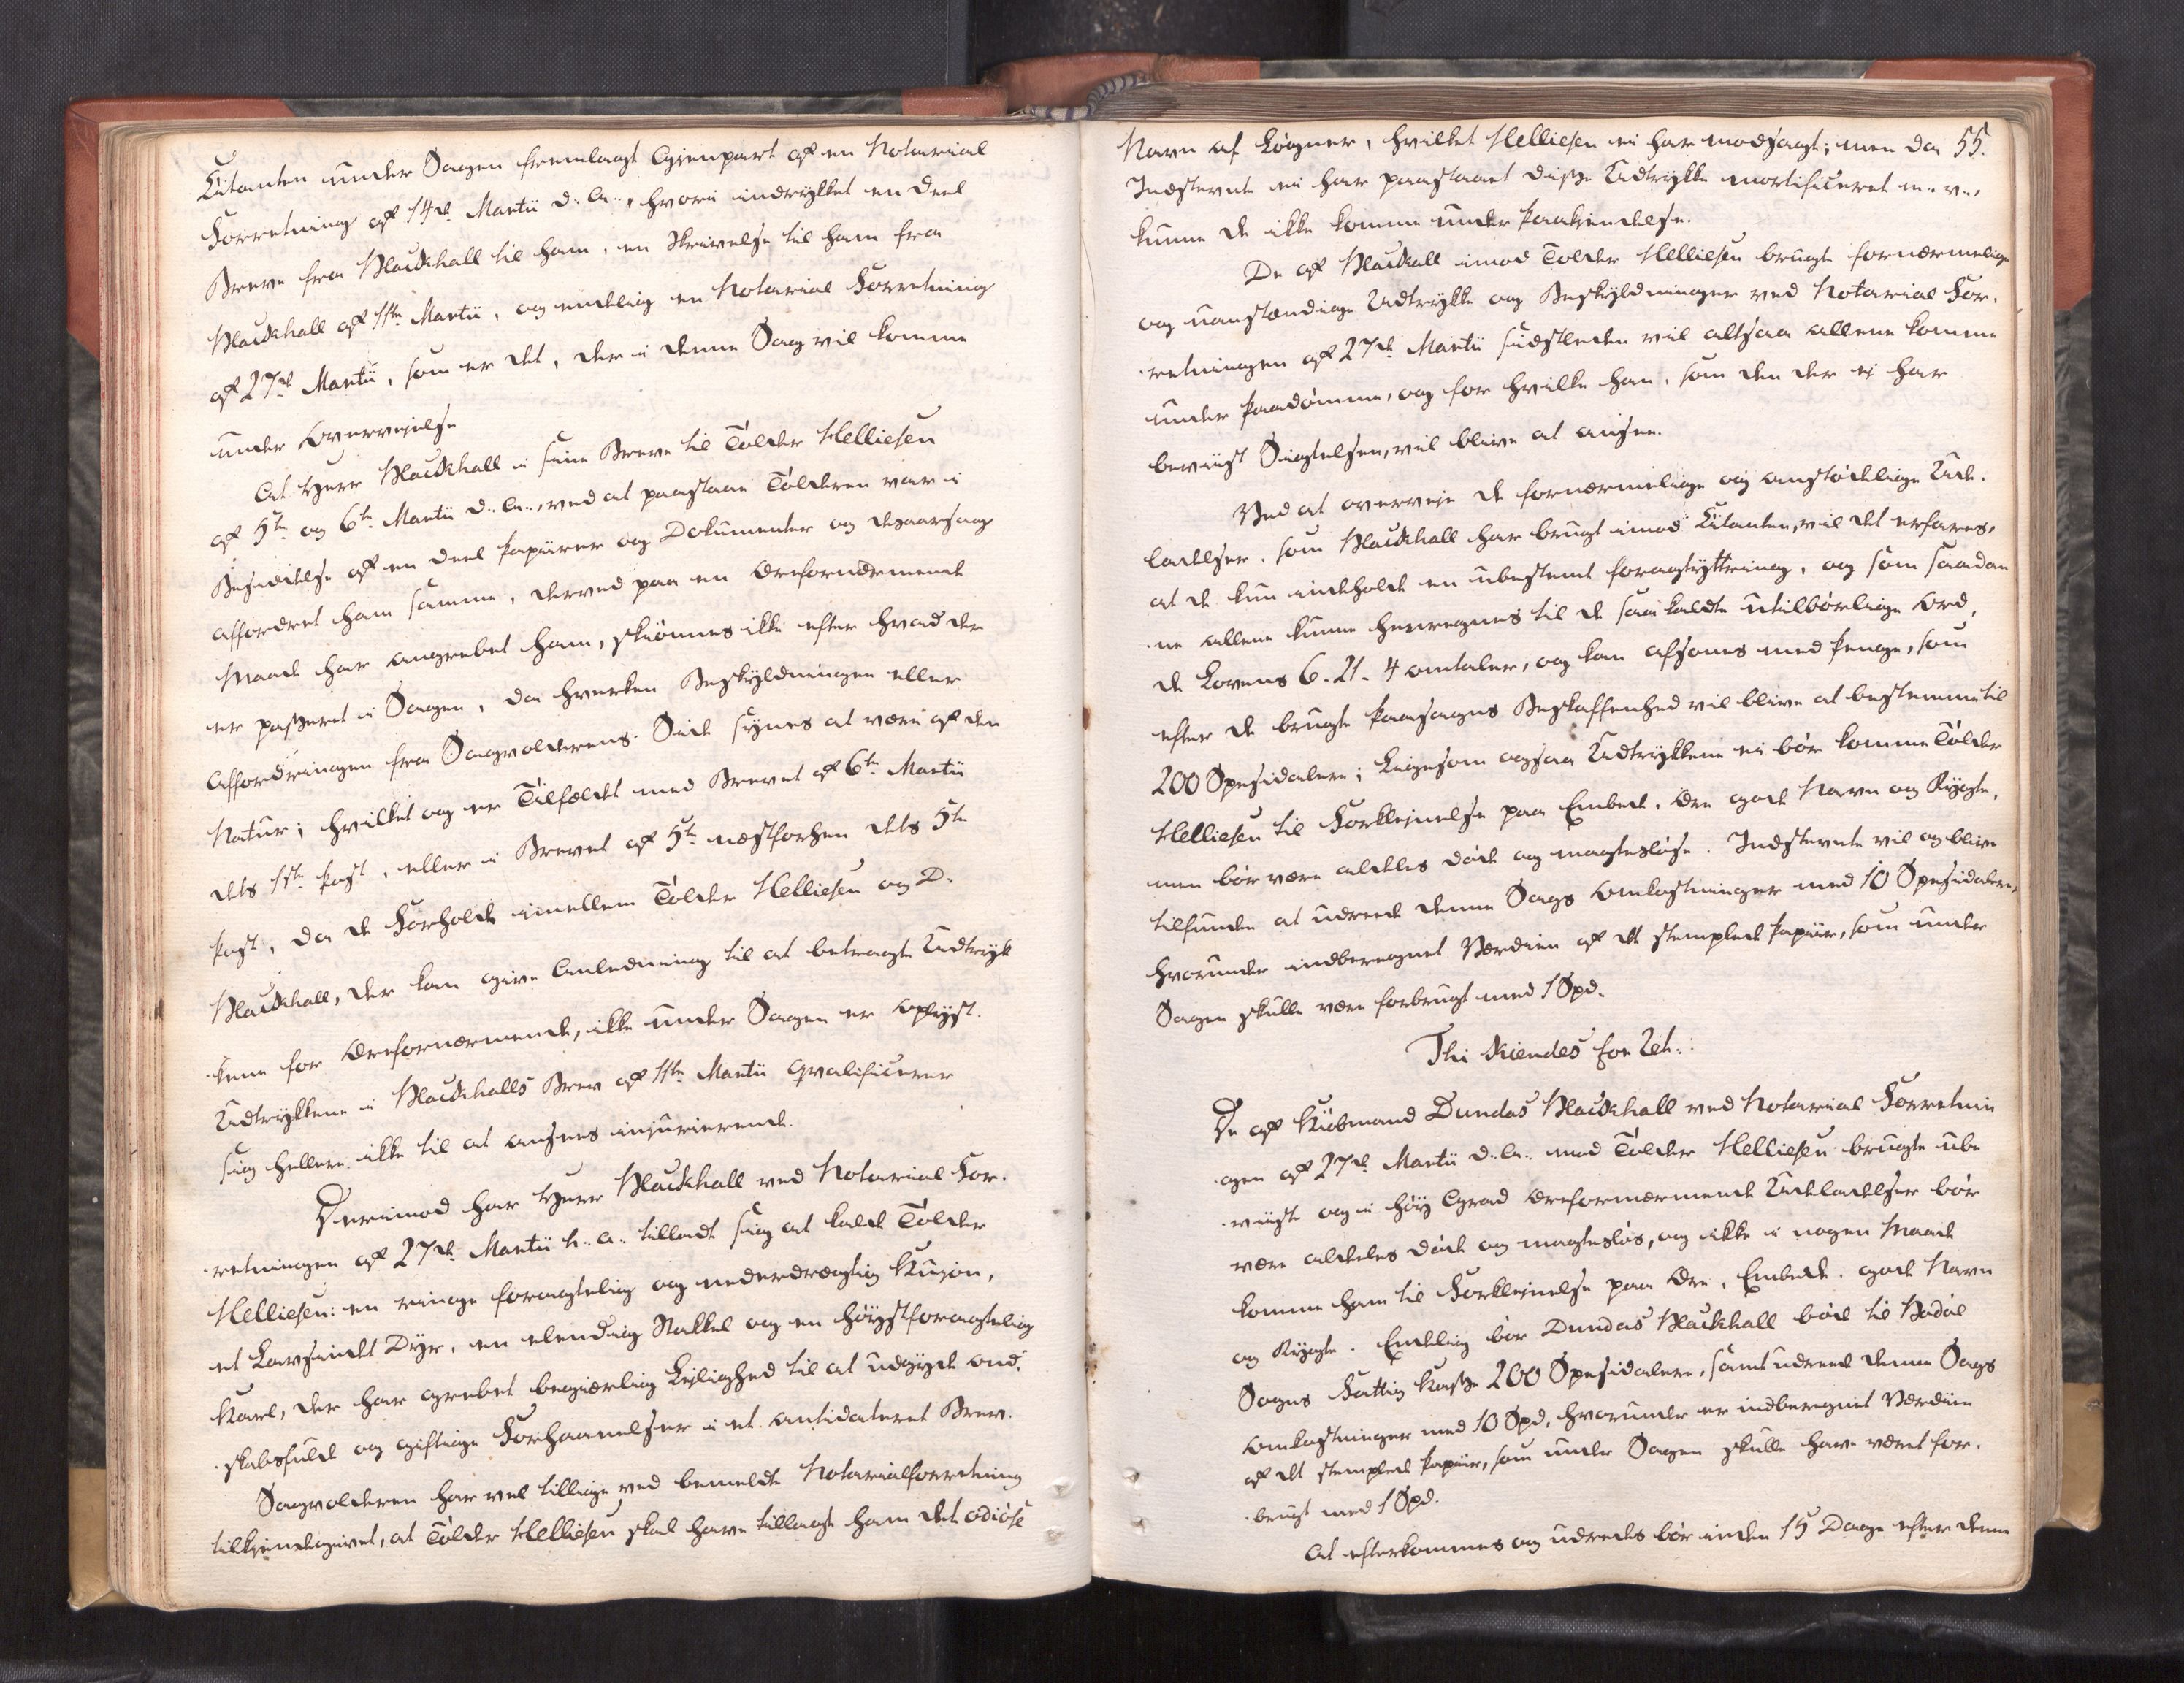 Citanten under Sagen fremlagt Gjenpart af en Notarial
Forretning af 14de Martii d. A., hvori indrykket en Deel
Breve fra Blackhall til ham, en Skrivelse til ham fra
Blackhall af 11te Martii, og endelig en Notarial Forretning
af 27de Martii, som er det, der i denne Sag vil komme
under Overvejelse
At Herr Blackhall i sine Breve til Tolder Helliesen
af 5te og 6te Martii d. A., ved at paastaae Tolderen var i
Besiddelse af en Deel Papiirer og Dokumenter og desaarsag
affordret ham samme, derved paa en ærefornærmende
Maade har angrebet ham, skiønnes ikke efter hvad der
er passeret i Sagen, da hverken Beskyldningen eller
Affordringen fra Sagvolderens Side synes at være af den
Natur; hvilket og er Tilfældet med Brevet af 6te Martii
dets 1ste Post, eller i Brevet af 5te næstforhen dets 5te
Post, da de Forholde imellem Tolder Helliesen og D.
Blackhall, der kan give Anledning til at betragte Udtryk
kene for ærefornærmende, ikke under Sagen er oplyst.
Udtrykkene i Blackhalls Brev af 11te Martii qvalificerer
sig hellere ikke til at ansees injurierende.
Derimod har Herr Blackhall ved Notarial For-
retningen af 27de Martii h. a. tilladt sig at kalde Tolder
Helliesen: en ringe foragtelig og nederdrægtig Kujon,
et Lavsindet Dyr, en elendig Stakkel og en høystforagtelig
Karl, der har grebet begiærlig Leilighed til at udgyde ond-
skabsfulde og giftige Forhaanelser i et antidateret Brev.
Sagvolderen har vel tillige ved bemeldte Notarialforretning
tilkjendegivet, at Tolder Helliesen skal have tillagt ham det odiøse
Navn af Løgner, hvilket Helliesen ei har modsagt; men da 55.
Indstevnte ei har paastaaet disse Udtrykke mortificeret m. v.,
kunne de ikke komme under Paakjendelse.
De af Blackhall imod Tolder Helliesen brugte fornærmelige
og uanstændige Udtrykke og Beskyldninger ved Notarial For-
retningen af 27de Martii sidstleden vil altsaa allene komme
under Paadømme, og for hvilke han, som den der ej har
beviist Sigtelsen, vil blive at ansee.
Ved at overveje de fornærmelige og anstødelige Ude-
ladelser, som Blackhall har brugt imod Citanten, vil det erfares,
at de kun indeholde en ubestemt foragtyttring, og som saadan
ne allene kunne henregnes til de saa kaldte utilbørlige Ord,
de Lovens 6-21-4 omtaler, og kan afsones med Penge, som
efter de brugte Paasagns Beskaffenhed vil blive at bestemme til
200 Spesidalere; Ligesom ogsaa Udtrykkene ei bør komme Tolder
Helliesen til Forklejnelse paa Embede, Ære gode Navn og Rygte,
men bør være aldeles døde og magtesløse. Indstevnte vil og blive
tilfunden at udrede denne Sags Omkostninger med 10 Spesidaler,
hvorunder indberegnet Værdien af det stemplede Papiir, som under
Sagen skulle være forbrugt med 1 Spd.
Thi Kiendes for Ret:
De af Kiøbmand Dundas Blackhall ved Notarial Forretnin
gen af 27de Martii d. A. mod Tolder Helliesen brugte ube
viiste og i høy Grad ærefornærmende Udeladelser bør
være aldeles døde og magtesløs, og ikke i nogen Maade
komme ham til Forklejnelse paa Ære, Embede, gode Navn
og Rygte. Endelig bør Dundas Blackhall bøde til Bodøe
Sogns Fattig Kasse 200 Spesidalere, samt udrede denne Sags
Omkostninger med 10 Spd, hvorunder er indberegnet Værdien
af det stemplede Papiir, som under Sagen skulle have været for-
brugt med 1 Spd.
At efterkommes og udredes bør inden 15 Dage efter denne